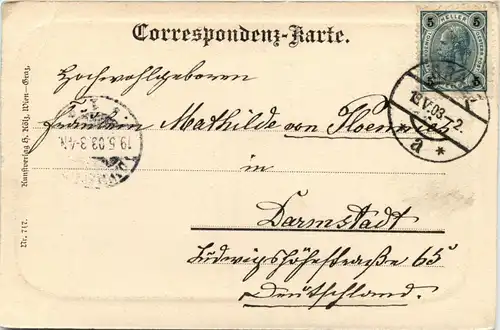 Correspondenz-Karte.
5 HELLER 5
5 5
18 V 03-2.
* a *
Hochwohlgeboren
Fräulein Mathilde von
19.5.03.3-4N.
in
Darmstadt
Ludwigshöhstraße 65
Deutschland.
Nr. 717. Kunstverlag S. Kölz, Wien-Graz.